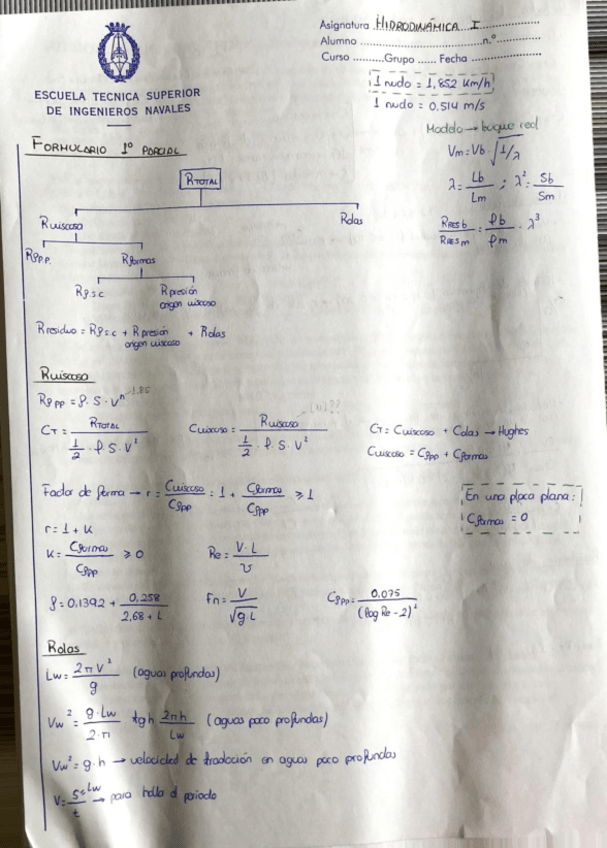 Asignatura HIDRODINÁMICA I
Alumno n.º
Curso Grupo Fecha
ESCUELA TECNICA SUPERIOR
DE INGENIEROS NAVALES
1 nudo = 1,852 km/h
1 nudo = 0.514 m/s
Modelo → buque real
Vm = Vb · √1/λ
λ = Lb/Lm ; λ² = Sb/Sm
RRES b / RRES m = ρb/ρm · λ³
FORMULARIO 1º PARCIAL
RTOTAL
Rviscoso
Rolas
Rfpp.
Rformas
Rfsc
Rpresión origen viscoso
Rresiduo = Rfsc + Rpresión origen viscoso + Rolas
Rviscoso
Rfpp = f · S · Vⁿ 1.85
CT = RTOTAL / ½ · ρ · S · V²
Cviscoso = Rviscoso / ½ · ρ · S · V²
CT = Cviscoso + Colas → Hughes
Cviscoso = Cfpp + Cformas
Factor de forma → r = Cviscoso/Cfpp = 1 + Cformas/Cfpp ≥ 1
En una placa plana:
Cformas = 0
r = 1 + K
K = Cformas/Cfpp ≥ 0
Re = V · L / υ
f = 0.1392 + 0.258 / 2,68 + L
Fn = V / √g·L
Cfpp = 0.075 / (log Re - 2)²
Rolas
Lw = 2πV² / g (aguas profundas)
Vw² = g · Lw / 2·π tgh 2πh / Lw (aguas poco profundas)
Vw² = g · h → velocidad de traslación en aguas poco profundas
para halla el periodo